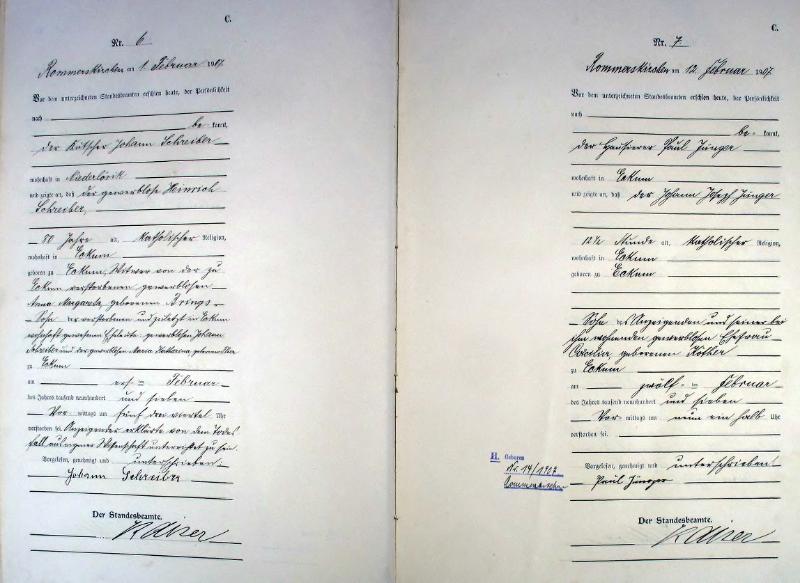 C.
Nr. 6
Rommerskirchen am 1. Februar 1907
Vor dem unterzeichneten Standesbeamten erschien heute, der Persönlichkeit
nach
be kannt,
der Kutscher Johann Schreiber
wohnhaft in
und zeigte an, daß der gewerblose Heinrich
Schreiber,
80 Jahre alt, katholischer Religion,
wohnhaft in Eckum
geboren zu Eckum, Witwer von der zu
Eckum verstorbenen gewerblosen
Anna Margareta, geborenen Brings
Sohn der verstorbenen und zuletzt in Eckum
wohnhaft gewesenen Eheleute gewerblosen Johann
Schreiber und der gewerblosen Maria Katharina, geborenen
zu Eckum
am ersten Februar
des Jahres tausend neunhundert und sieben
Vor mittags um fünf drei viertel Uhr
verstorben sei. Anzeigender erklärte von dem Todes
fall aus eigener Wissenschaft unterrichtet zu sein.
Vorgelesen, genehmigt und unterschrieben
Johann Schreiber
Der Standesbeamte.
C.
Nr. 7
Rommerskirchen am 12. Februar 1907
Vor dem unterzeichneten Standesbeamten erschien heute, der Persönlichkeit
nach
be kannt,
der Hausierer Paul Jünger
wohnhaft in Eckum
und zeigte an, daß der Johann Joseph Jünger
12½ Stunde alt, katholischer Religion,
wohnhaft in Eckum
geboren zu Eckum
Sohn des Anzeigenden und seiner bei
ihm wohnenden gewerblosen Ehefrau
Cäcilia, geborenen Köther
zu Eckum
am zwölf ten Februar
des Jahres tausend neunhundert und sieben
Vor mittags um neun ein halb Uhr
verstorben sei.
H. Geboren
Nr. 14/1907
Rommerskirchen
Vorgelesen, genehmigt und unterschrieben
Paul Jünger
Der Standesbeamte.